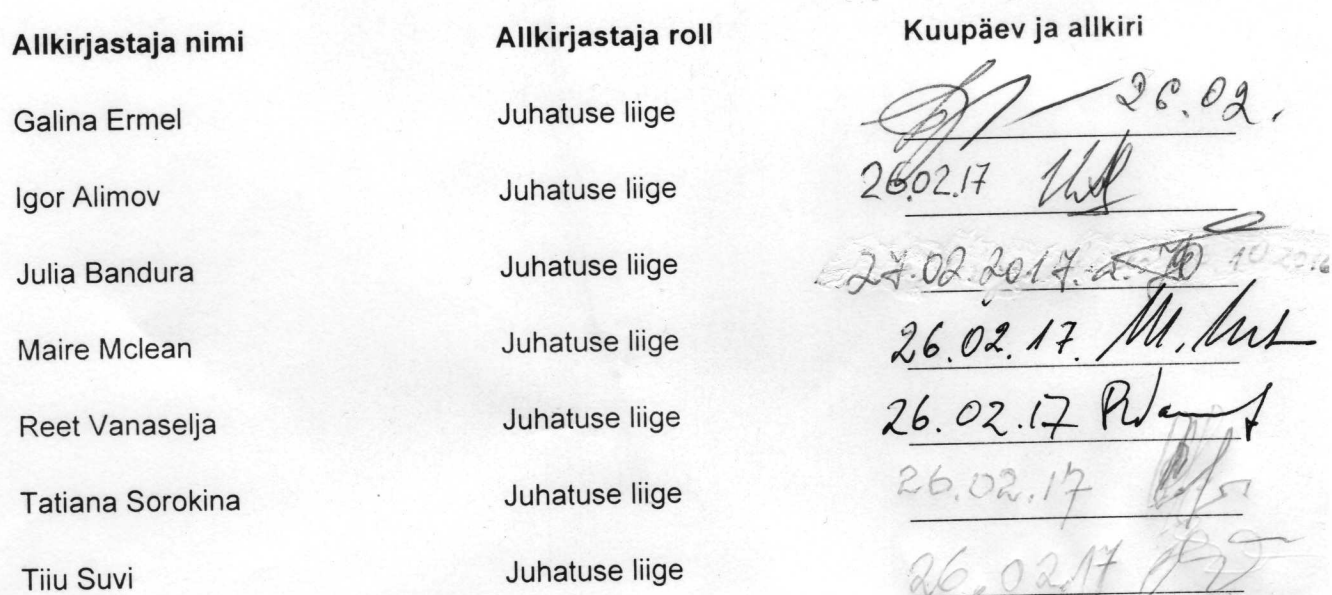 Allkirjastaja nimi Allkirjastaja roll Kuupäev ja allkiri
Galina Ermel Juhatuse liige 26.02.
Igor Alimov Juhatuse liige 26.02.17
Julia Bandura Juhatuse liige 27.02.2017.a.
Maire Mclean Juhatuse liige 26.02.17.
Reet Vanaselja Juhatuse liige 26.02.17
Tatiana Sorokina Juhatuse liige 26.02.17
Tiiu Suvi Juhatuse liige 26.02.17